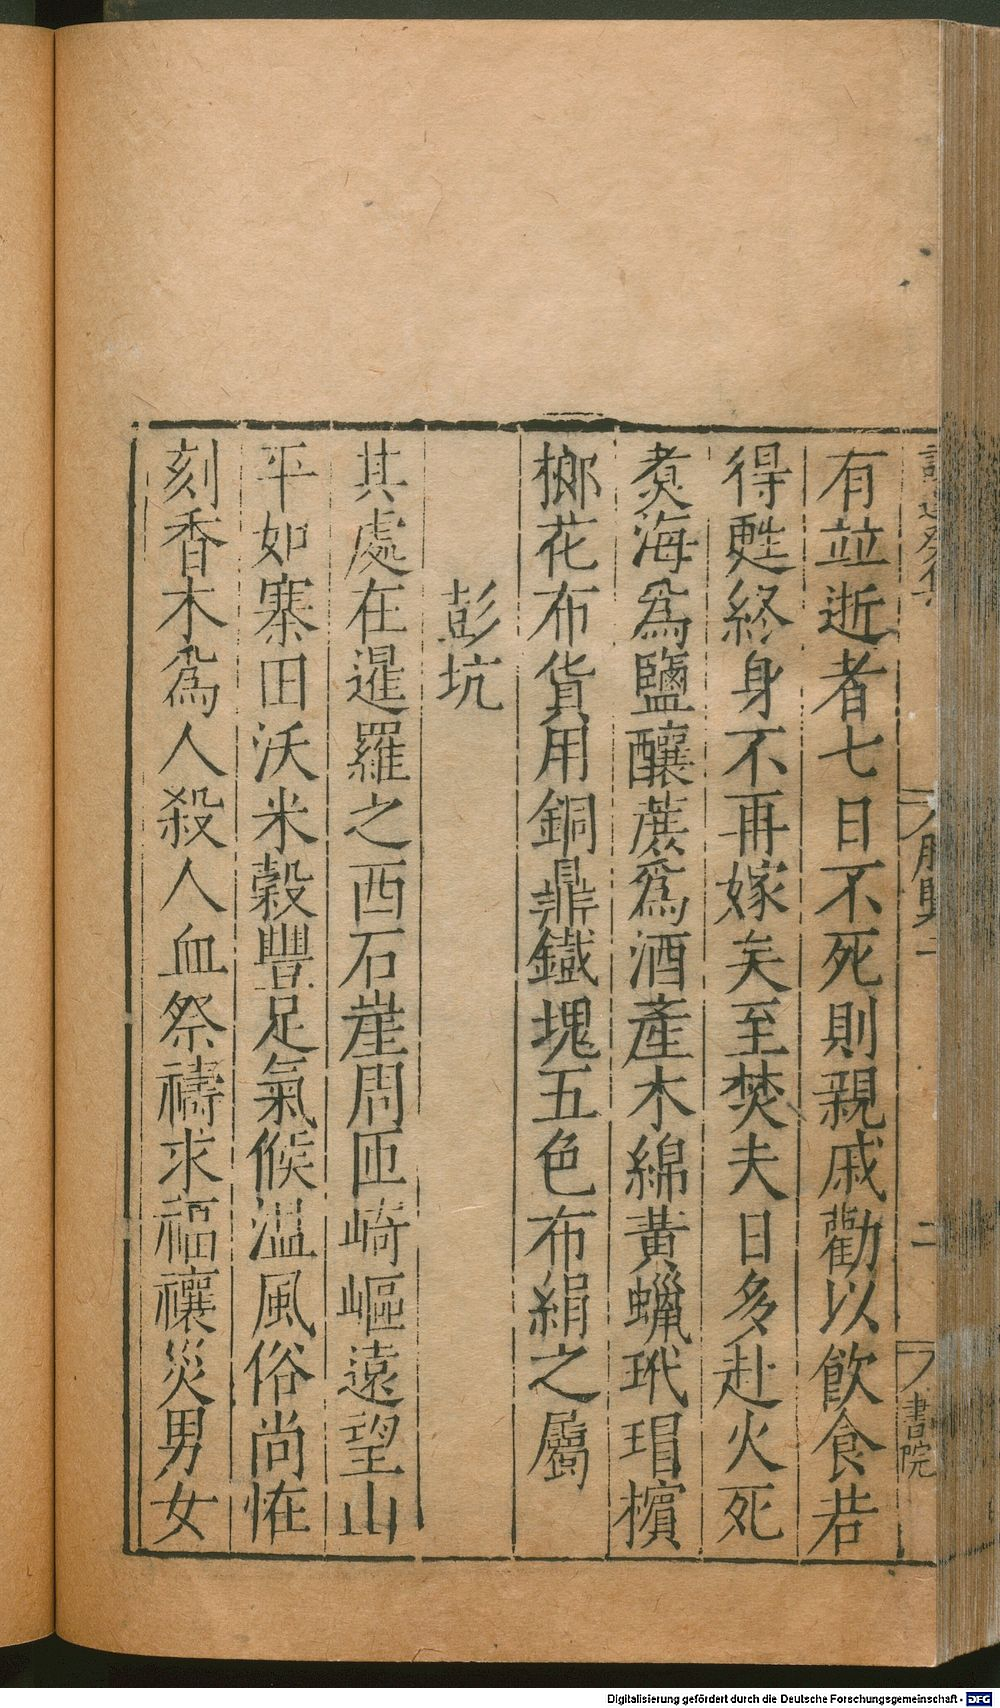 有竝逝者七日不死則親戚勸以飲食若
得甦終身不再嫁矣至焚夫日多赴火死
煑海為鹽釀蔗為酒產木綿黃蠟玳瑁檳
榔花布貨用銅鼎鐵塊五色布絹之屬
彭坑
其處在暹羅之西石崖周匝崎嶇遠望山
平如寨田沃米穀豐足氣候溫風俗尚恠
刻香木為人殺人血祭禱求福禳災男女
二
書院
Digitalisierung gefördert durch die Deutsche Forschungsgemeinschaft - DFG